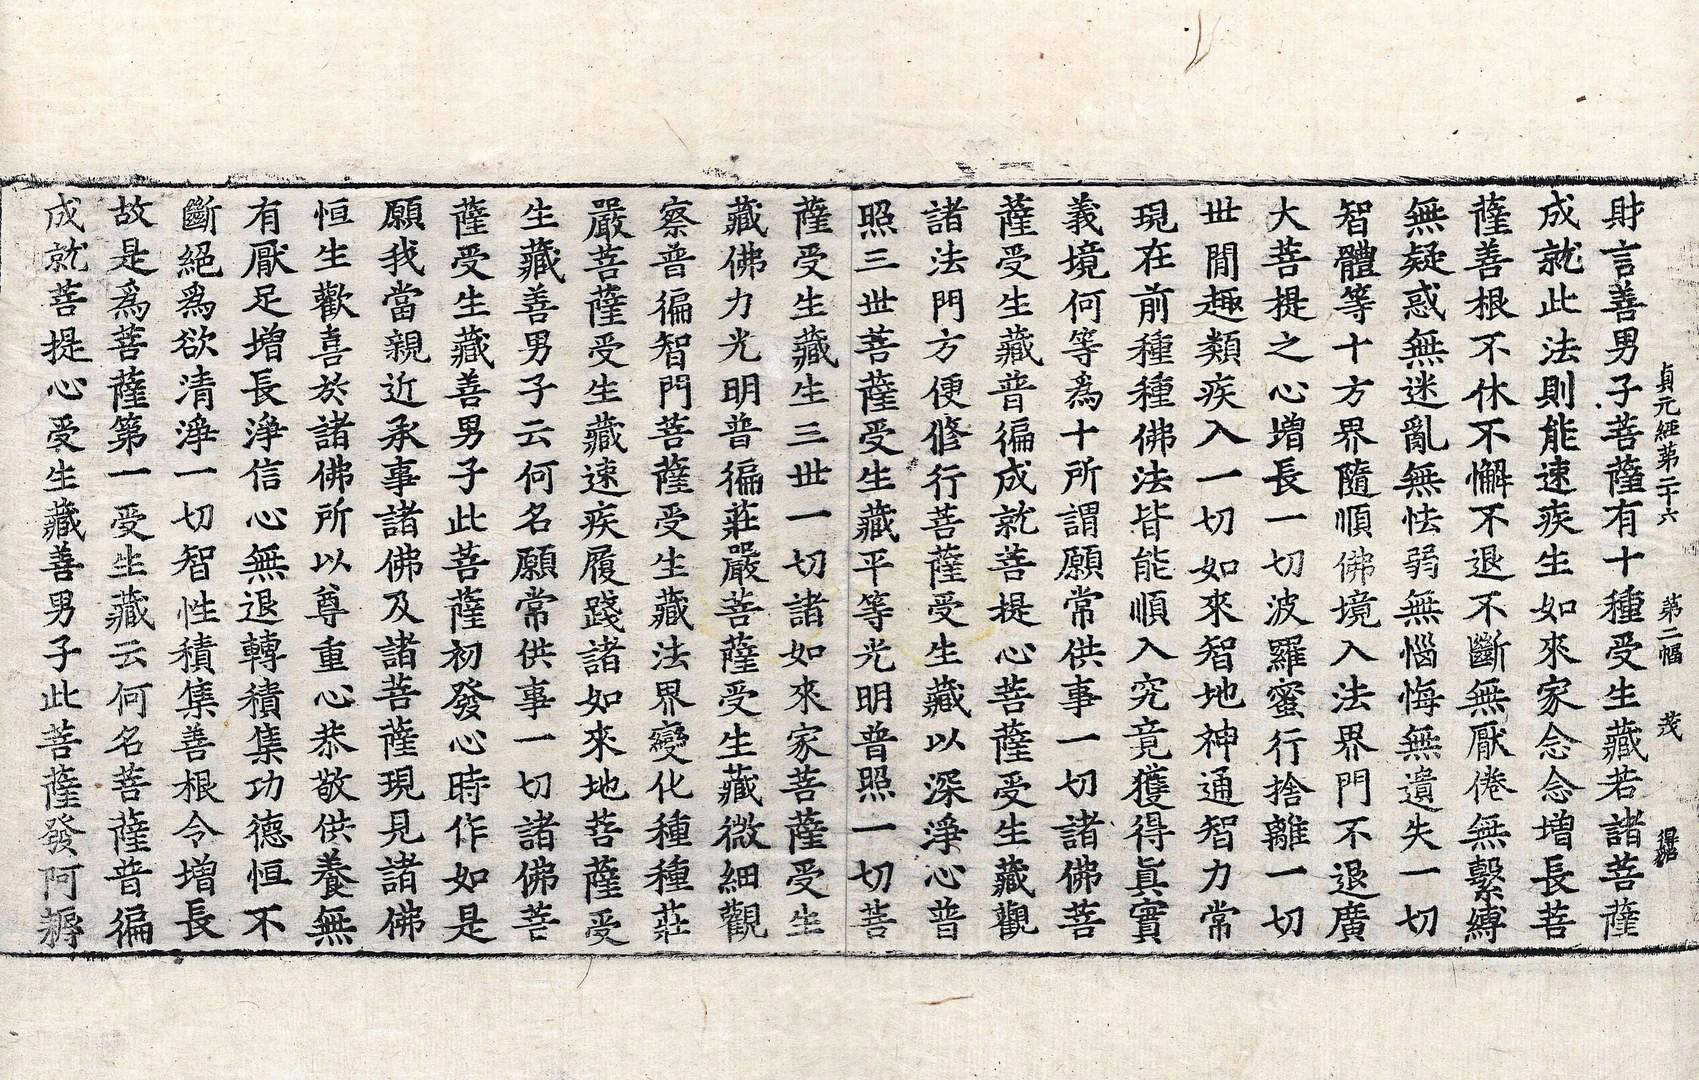 貞元經第二十六 第二幅 茂
財言善男子菩薩有十種受生藏若諸菩薩
成就此法則能速疾生如來家念念增長菩
薩善根不休不懈不退不斷無厭倦無繫縛
無疑惑無迷亂無怯弱無惱悔無遺失一切
智體等十方界隨順佛境入法界門不退廣
大菩提之心增長一切波羅蜜行捨離一切
世間趣類疾入一切如來智地神通智力常
現在前種種佛法皆能順入究竟獲得眞實
義境何等爲十所謂願常供事一切諸佛菩
薩受生藏普徧成就菩提心菩薩受生藏觀
諸法門方便修行菩薩受生藏以深淨心普
照三世菩薩受生藏平等光明普照一切菩
薩受生藏生三世一切諸如來家菩薩受生
藏佛力光明普徧莊嚴菩薩受生藏微細觀
察普徧智門菩薩受生藏法界變化種種莊
嚴菩薩受生藏速疾履踐諸如來地菩薩受
生藏善男子云何名願常供事一切諸佛菩
薩受生藏善男子此菩薩初發心時作如是
願我當親近承事諸佛及諸菩薩現見諸佛
恒生歡喜於諸佛所以尊重心恭敬供養無
有厭足增長淨信心無退轉積集功德恒不
斷絕爲欲清淨一切智性積集善根令增長
故是爲菩薩第一受生藏云何名菩薩普徧
成就菩提心受生藏善男子此菩薩發阿耨